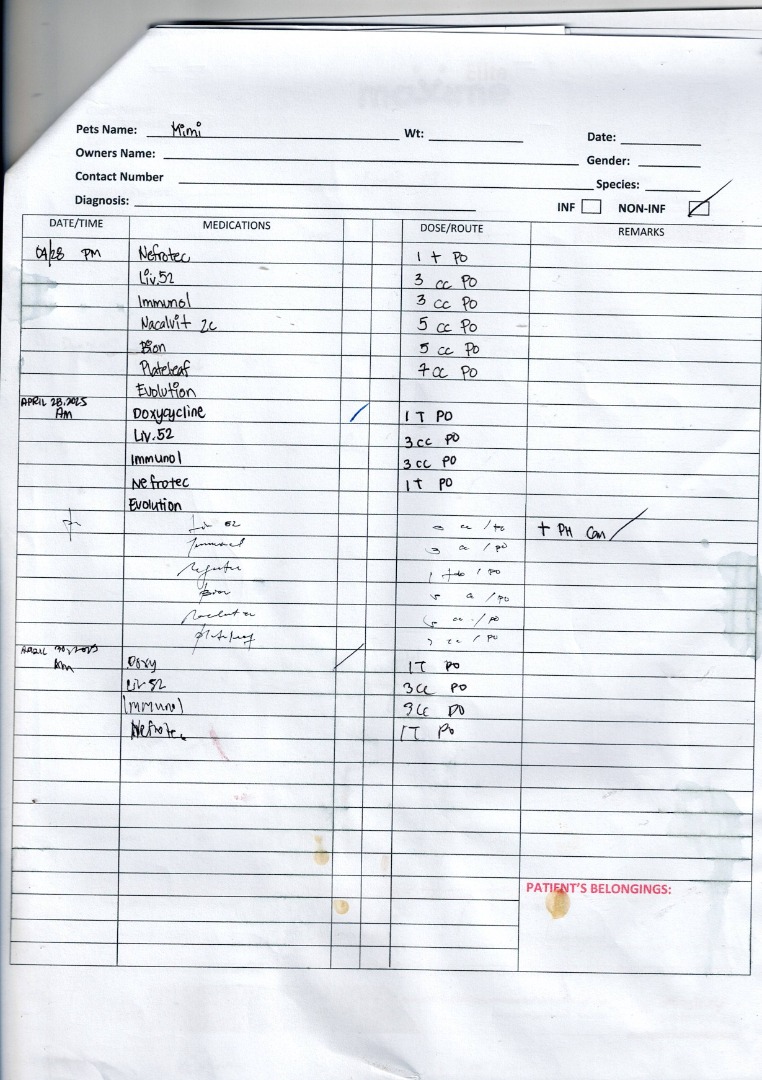 Pets Name: Mimi Wt: Date:
Owners Name: Gender:
Contact Number Species:
Diagnosis: INF NON-INF
DATE/TIME MEDICATIONS DOSE/ROUTE REMARKS
04/28 PM Nefrotec 1 t PO
Liv.52 3 cc PO
Immunol 3 cc PO
Nacalvit 2c 5 cc PO
Bion 5 cc PO
Plateleaf 7 cc PO
Evolution
APRIL 28, 2025
Am Doxycycline 1 T PO
Liv.52 3 cc PO
Immunol 3 cc PO
Nefrotec 1 T PO
Evolution
52 + PH Can
/ PO
1 / PO
/ PO
/ PO
/ PO
APRIL
Am Doxy 1T PO
Liv 52 3cc PO
Immunol 3cc PO
Nefrotec 1T PO
PATIENT'S BELONGINGS: